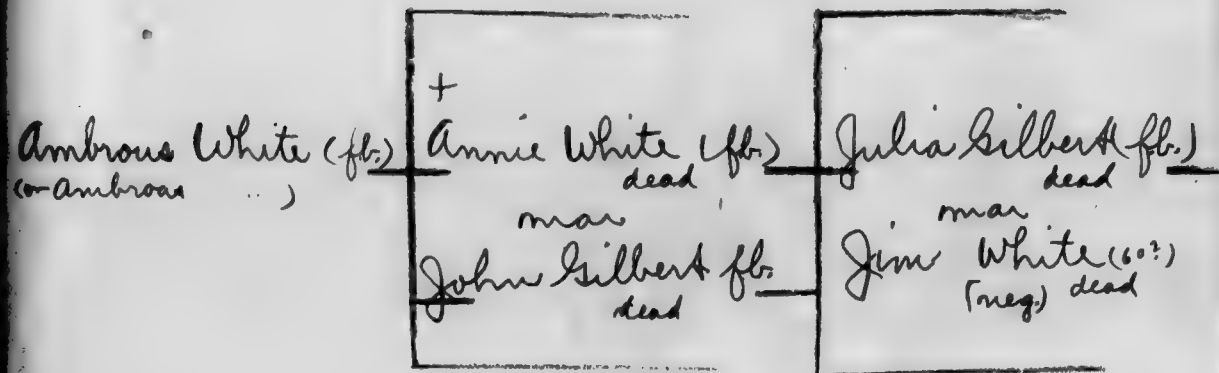 +
Ambrous White (fb.)
(or Ambroas " )
Annie White (fb.)
dead
mar
John Gilbert fb.
dead
Julia Gilbert (fb.)
dead
mar
Jim White (60?)
[neg.) dead